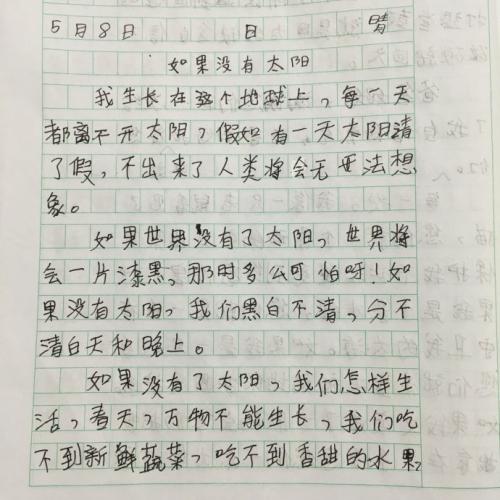 5月8日 日 晴
如果没有太阳
我生长在这个地球上,每一天
都离不开太阳,假如有一天太阳请
了假,不出来了人类将会无无法想
象。
如果世界没有了太阳,世界将
会一片漆黑,那时多么可怕呀!如
果没有太阳,我们黑白不清,分不
清白天和晚上。
如果没有了太阳,我们怎样生
活,春天,万物不能生长,我们吃
不到新鲜蔬菜,吃不到香甜的水果,